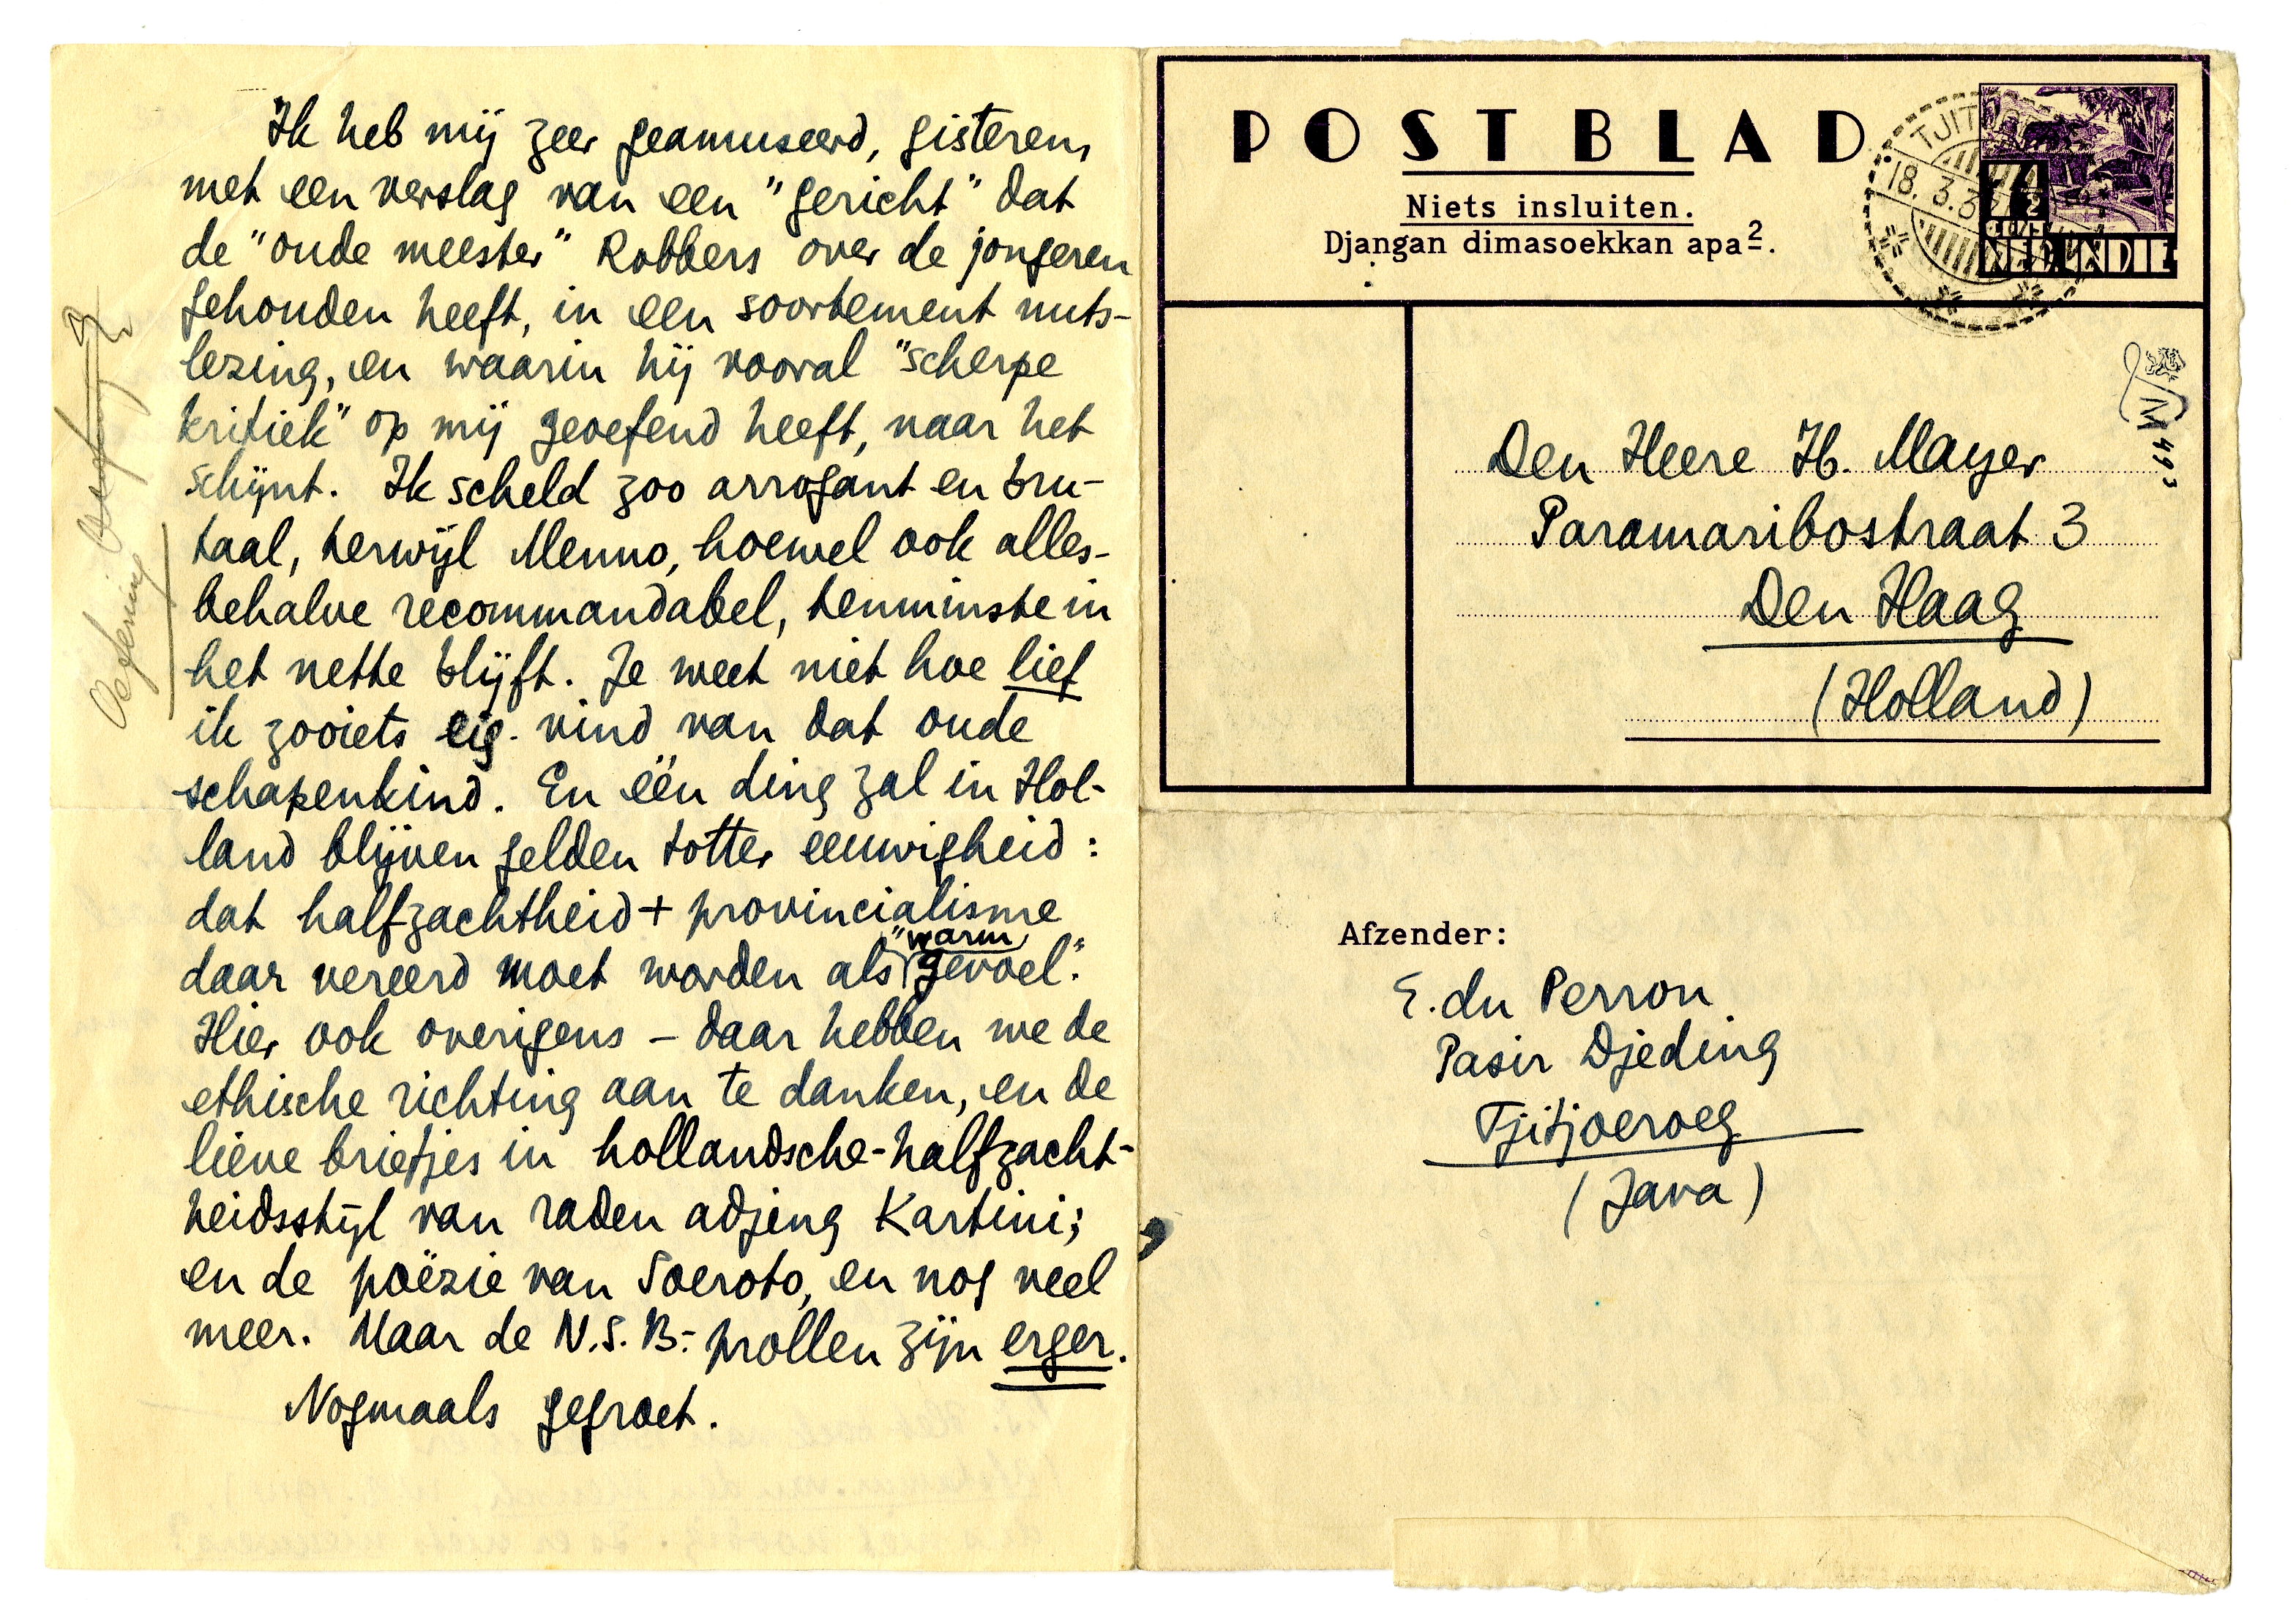 Ik heb mij zeer geamuseerd, gisteren,
met een verslag van een "gericht" dat
de "oude meester" Robbers over de jongeren
gehouden heeft, in een soortement nuts-
lezing, en waarin hij vooral "scherpe
kritiek" op mij geoefend heeft, naar het
schijnt. Ik scheld zoo arrogant en bru-
taal, terwijl Menno, hoewel ook alles-
behalve recommandabel, tenminste in
het nette blijft. Je weet niet hoe lief
ik zooiets eig. vind van dat oude
schapenkind. En één ding zal in Hol-
land blijven gelden totter eeuwigheid:
dat halfzachtheid + provincialisme
daar vereerd moet worden als "warm gevoel."
Hier ook overigens – daar hebben we de
ethische richting aan te danken, en de
lieve briefjes in hollandsche-halfzacht-
heidsstijl van raden adjeng Kartini;
en de poëzie van Soeroto, en nog veel
meer. Maar de N.S.B.-prollen zijn erger.
Nogmaals gegroet.
Oefening
POSTBLAD
Niets insluiten.
Djangan dimasoekkan apa2.
TJIT
18.3.3
NED. INDIE
M 493
Den Heere H. Mayer
Paramaribostraat 3
Den Haag
(Holland)
Afzender:
E. du Perron
Pasir Djeding
Tjitjoeroeg
(Java)